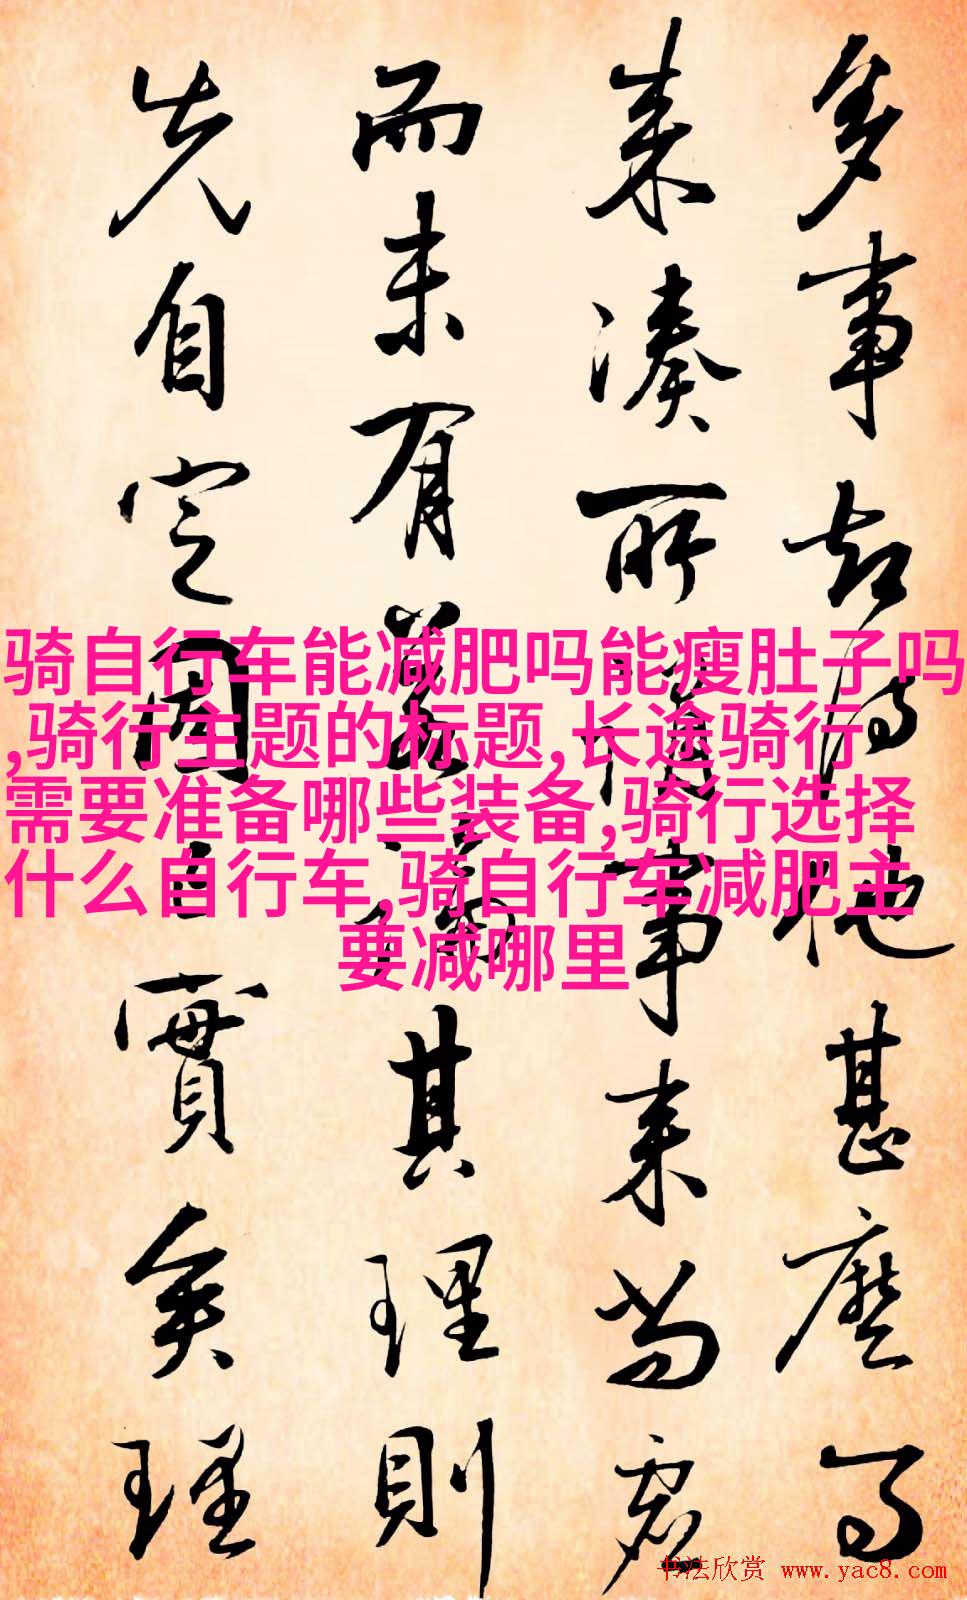 多事知得他甚麽了
来凑所谓事来尚寂
而未有其理則
先自定固已實矣理
骑自行车能减肥吗能瘦肚子吗
,骑行主题的标题,长途骑行
需要准备哪些装备,骑行选择
什么自行车,骑自行车减肥主
要减哪里
书法欣赏 www.yac8.com